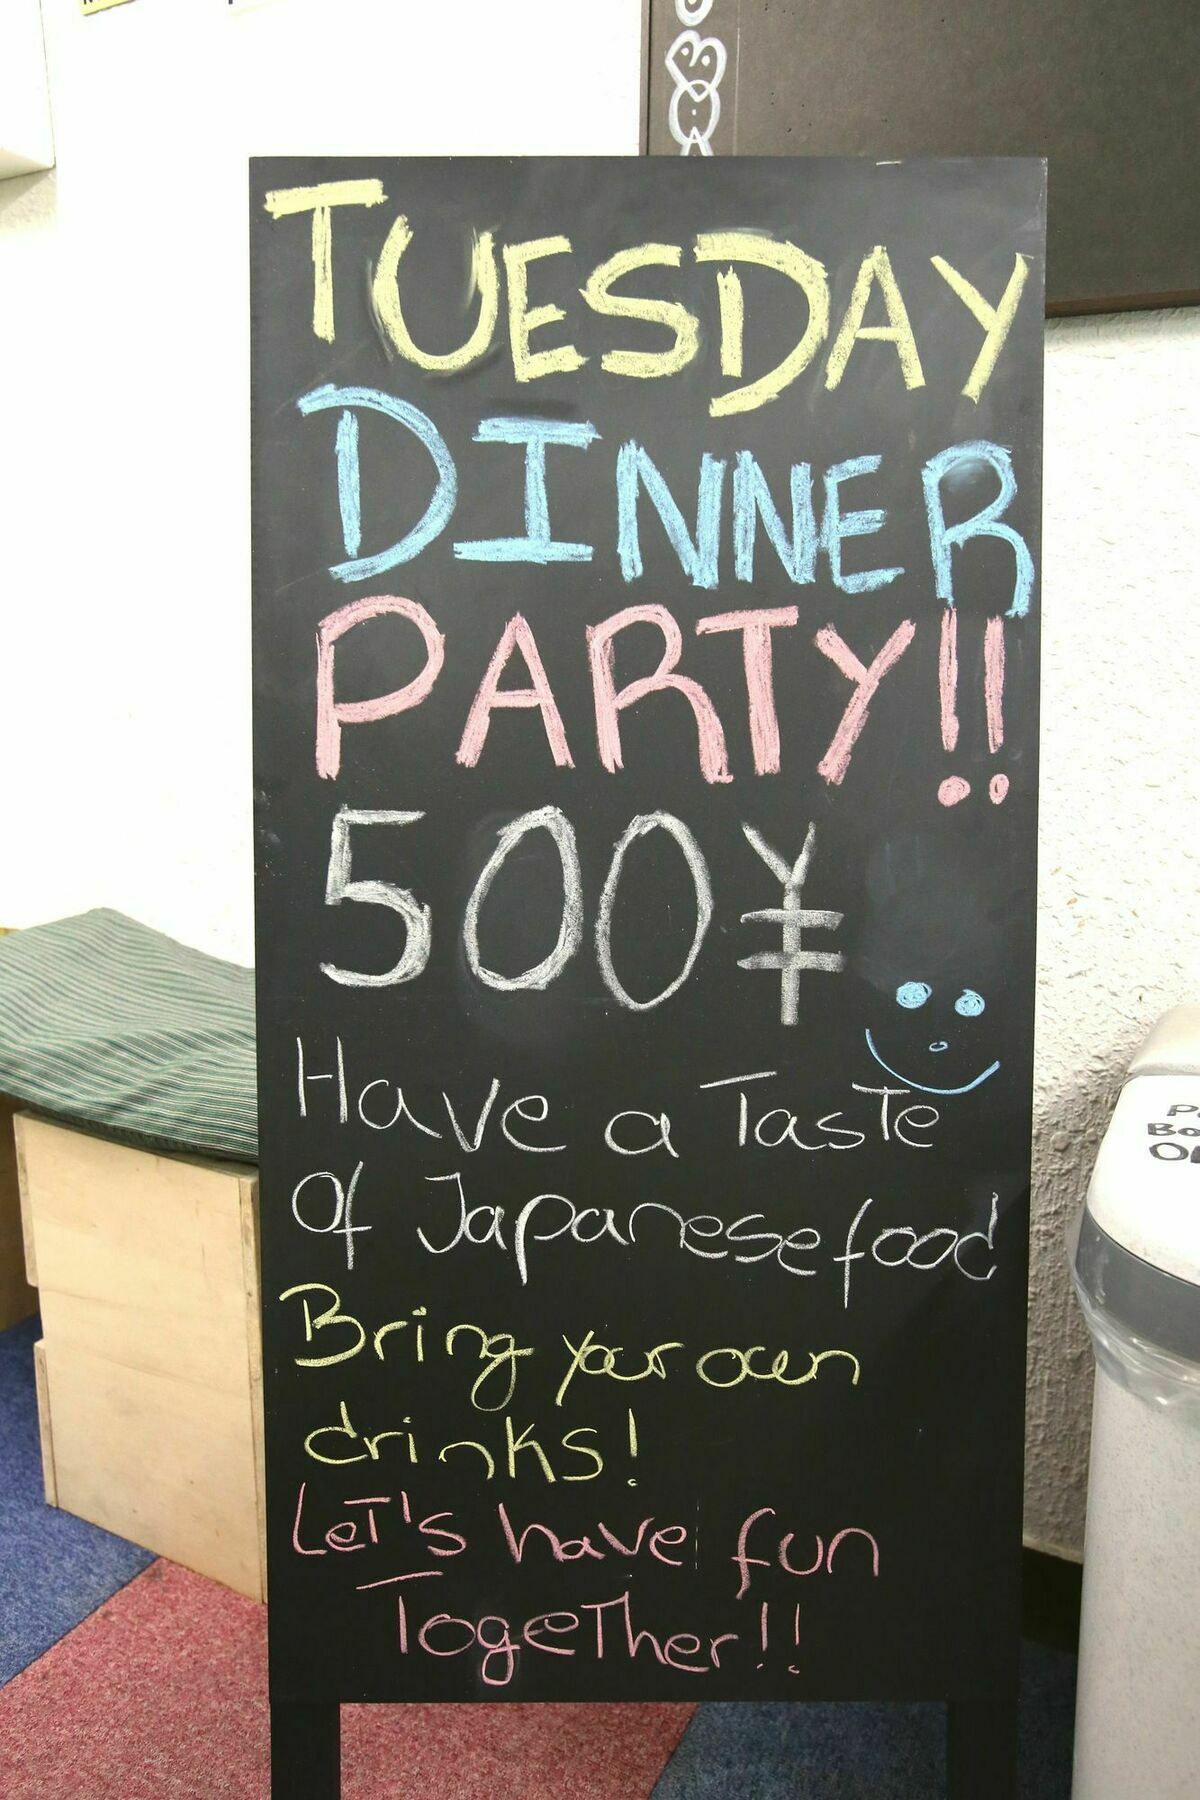 TUESDAY
DINNER
PARTY!!
500¥
Have a Taste
of Japanese food
Bring your own
drinks!
LeT's have fun
TogeTher!!